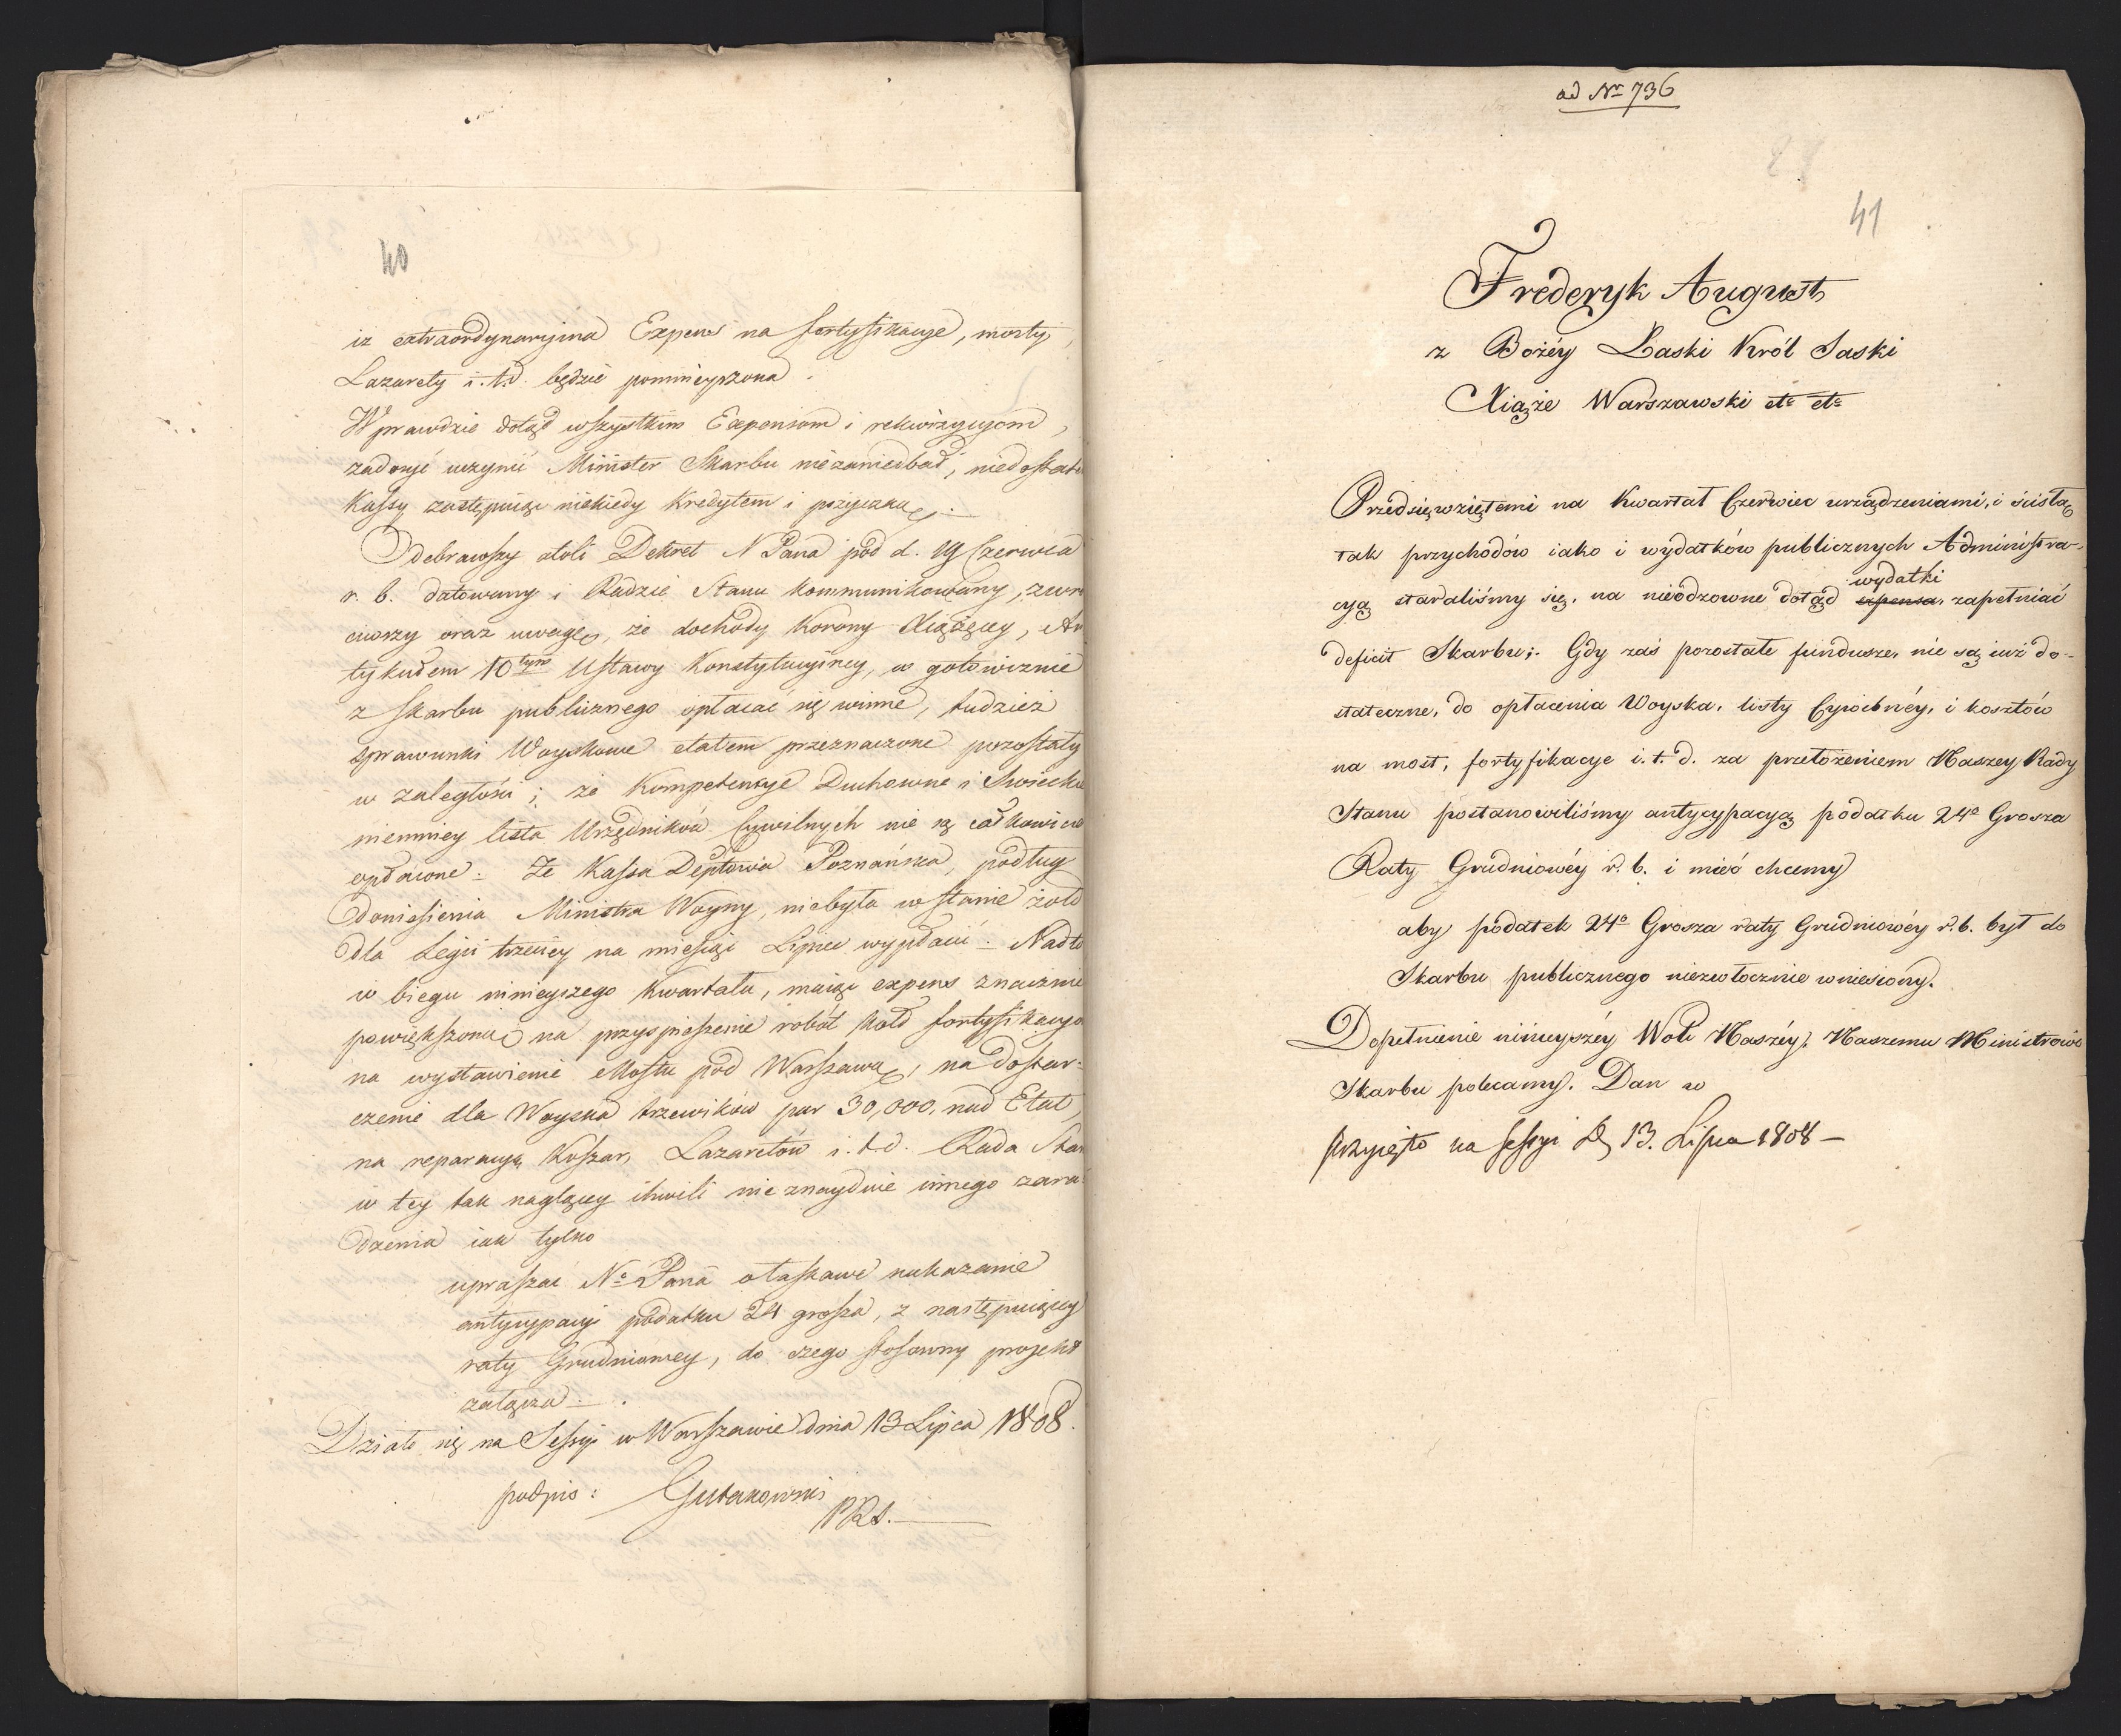 40
iż extraordynaryina Expens na fortyfikacye, mosty,
Lazarety i. t. d. będzie pomnieyszona.
Wprawdzie dotąd wszystkim Expensom i rekwizycyom,
zadosyć uczynić Minister Skarbu niezaniedbał, niedostatek
Kassy zastępuiąc niekiedy Kredytem i pożyczką.
Odebrawszy atoli Dekret N Pana pod d. 19 Czerwca
r. b. datowany i Radzie Stanu kommunikowany, zwró
ciwszy oraz uwagę, że dochody Korony Xiążęcey, Ar
tykułem 10tym Ustawy Konstytucyiney, w gotowiznie
z Skarbu publicznego opłacać się winne, tudzież
sprawunki Woyskowe etatem przeznaczone pozostały
w zaległości; że Kompetencye Duchowne i Swieckie
niemniey lista Urzędników Cywilnych nie są całkowicie
opłacone. Że Kassa Deptowa Poznańska, podług
Doniesienia Ministra Woyny, niebyła w stanie żołd
dla Legii trzeciey na miesiąc Lipiec wypłacić. Nadto
w biegu ninieyszego Kwartału, maiąc expens znacznie
powiększoną na przyspieszenie robót koło fortyfikacyi
na wystawienie Mostu pod Warszawą, na dostar-
czenie dla Woyska trzewików par 30,000. nad Etat,
na reparacyą Koszar, Lazaretów i. t. d. Rada Stanu
w tey tak naglącey chwili nie znayduie innego zara-
dzenia iak tylko
upraszać No Pana o łaskawe nakazanie
antycypacyi podatku 24 grosza, z następuiącey
raty Grudniowey, do czego stosowny projekt
załącza.
Działo się na Sessyi w Warszawie dnia 13 Lipca 1808.
podpis: Gutakowski
PRS.
ad Nr 736
28
41
Frederyk August
z Bożéy Łaski Król Saski
Xiąże Warszawski etc etc
Przedsięwziętemi na Kwartał Czerwiec urządzeniami, i ścisłą
tak przychodów iako i wydatków publicznych Administra-
cyą staraliśmy się, na nieodzowne dotąd expensa wydatki zapełniać
deficit Skarbu; Gdy zaś pozostałe fundusze, nie są iuż do-
stateczne, do opłacenia Woyska, listy Cywilnéy, i kosztów
na most, fortyfikacye i. t. d. za przełożeniem Naszey Rady
Stanu postanowiliśmy antycypacyą podatku 24o Grosza
Raty Grudniowéy r. b. i mieć chcemy
aby podatek 24o Grosza raty Grudniowéy r. b. był do
Skarbu publicznego niezwłocznie wniesiony.
Dopełnienie ninieyszéy Woli Naszéy, Naszemu Ministrowi
Skarbu polecamy. Dan w
przyięto na sessyi d. 13. Lipca 1808 –